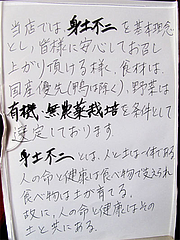 当店では、身土不二を基本理念
とし、皆様に安心してお召し
上がり頂ける様、食材は、
国産優先(鴨は除く)、野菜は
有機・無農薬栽培を条件として
選定しております。
身土不二とは、人と土は一体である
人の命と健康は食べ物で支えられ
食べ物は土が育てる。
故に、人の命と健康はその
土と共にある。